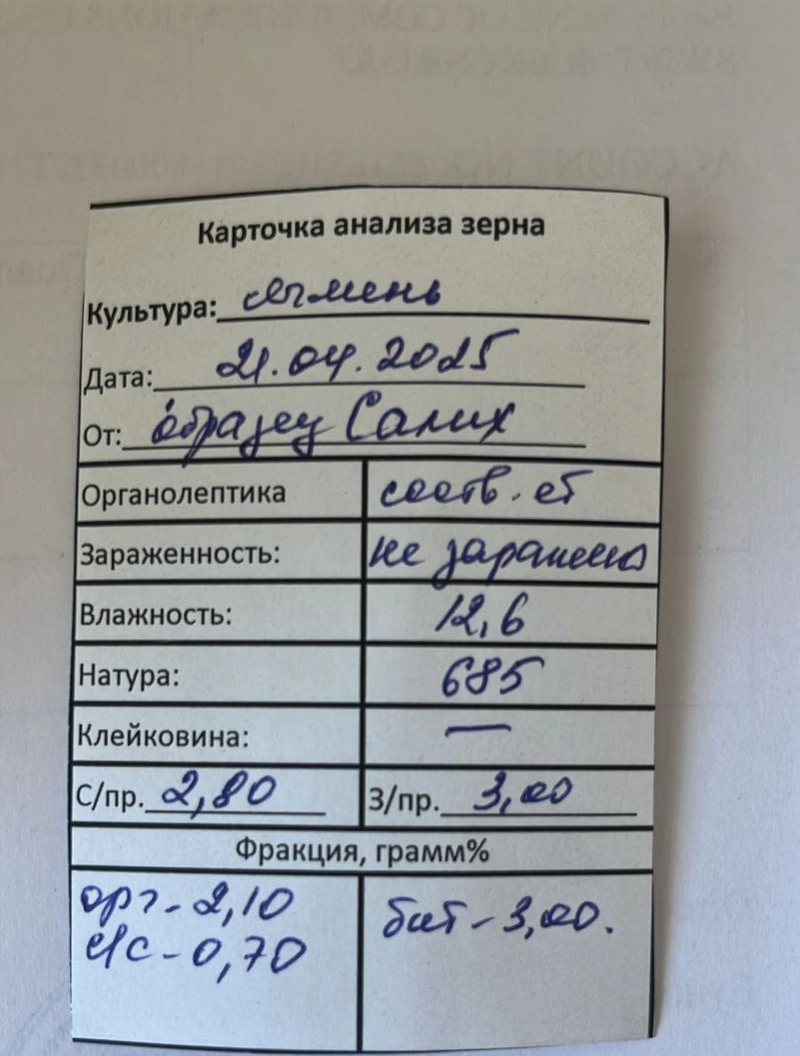 Карточка анализа зерна
Культура: ячмень
Дата: 21.04.2025
От: образец Салих
Органолептика соотв. ет
Зараженность: не заражено
Влажность: 12,6
Натура: 685
Клейковина: —
С/пр. 2,80 З/пр. 3,00
Фракция, грамм%
орг - 2,10 бит - 3,00.
с/с - 0,70